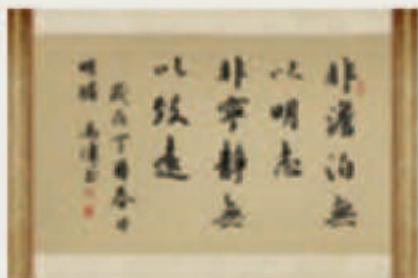 非澹泊無
以明志
非寧靜無
以致遠
歲在丁酉春日